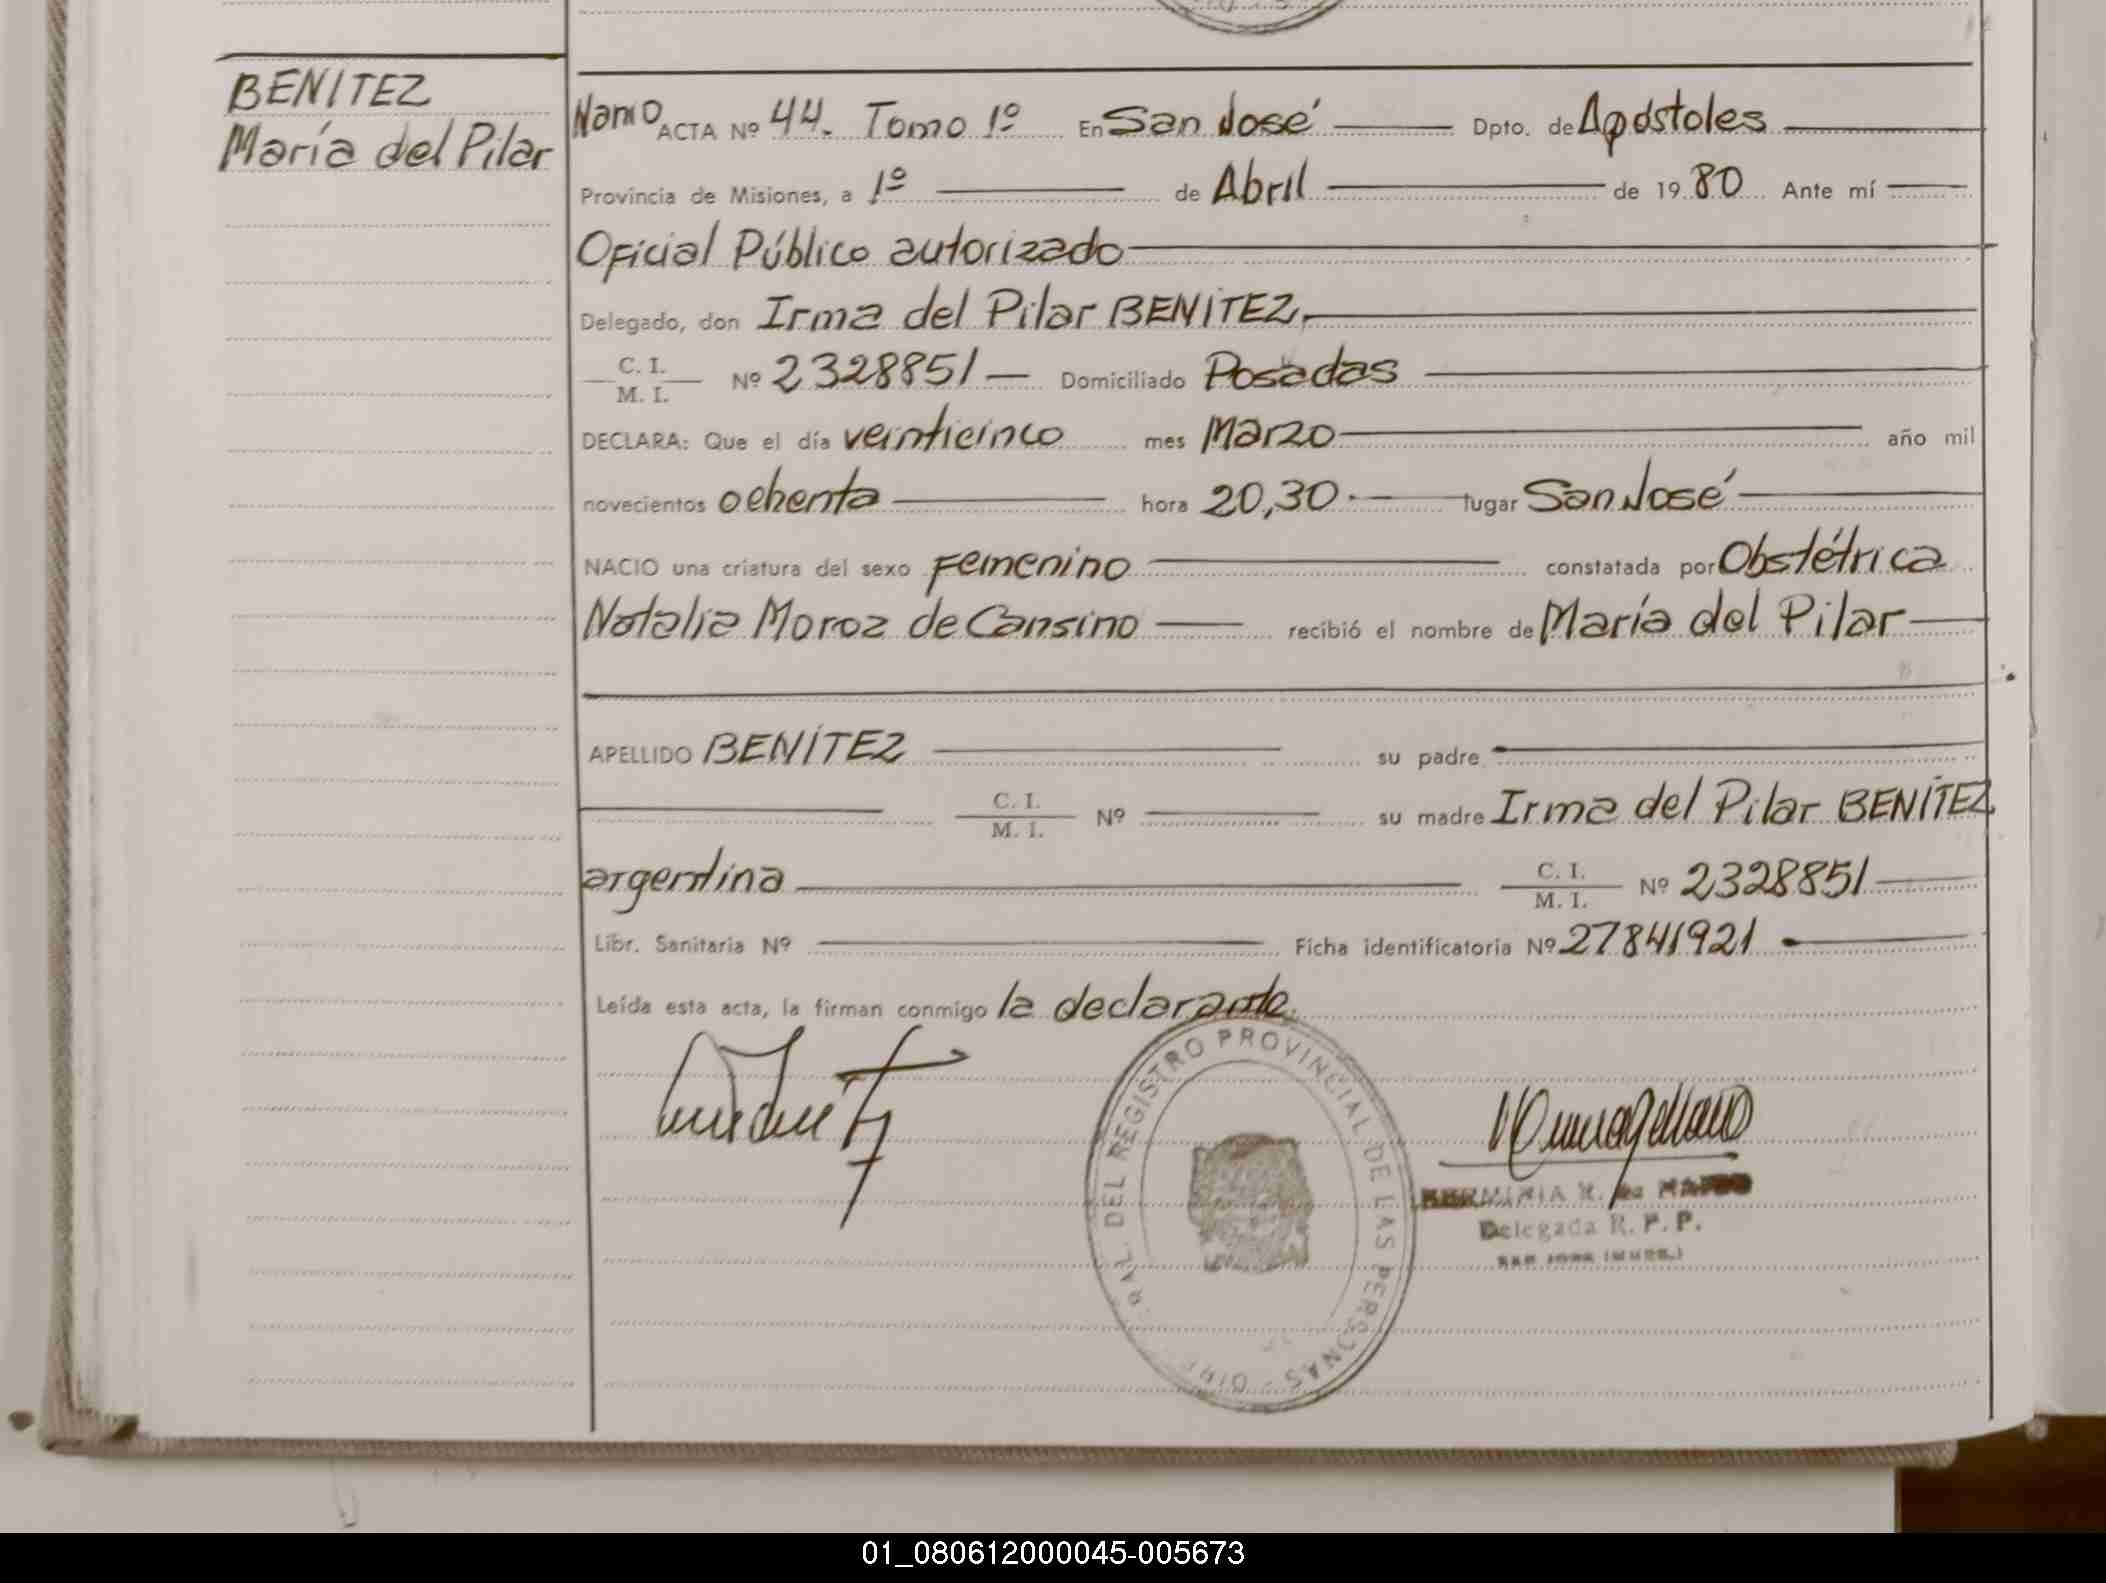 BENITEZ
María del Pilar
ACTA Nº 44. Tomo 1º En San José Dpto. de Apóstoles
Provincia de Misiones, a 1º de Abril de 19 80 Ante mí
Oficial Público autorizado
Delegado, don Irma del Pilar BENITEZ,
C. I.
M. I. Nº 2328851 Domiciliado Posadas
DECLARA: Que el día veinticinco mes Marzo año mil
novecientos ochenta hora 20,30 lugar San José
NACIO una criatura del sexo Femenino constatada por Obstétrica
Natalia Moroz de Cansino recibió el nombre de María del Pilar
APELLIDO BENÍTEZ su padre
C. I.
M. I. Nº su madre Irma del Pilar BENÍTEZ
argentina C. I.
M. I. Nº 2328851
Libr. Sanitaria Nº Ficha identificatoria Nº 27841921
Leída esta acta, la firman conmigo la declarante.
DEL REGISTRO PROVINCIAL DE LAS PERSONAS
HERMINIA R. de
Delegada R. P. P.
01_080612000045-005673